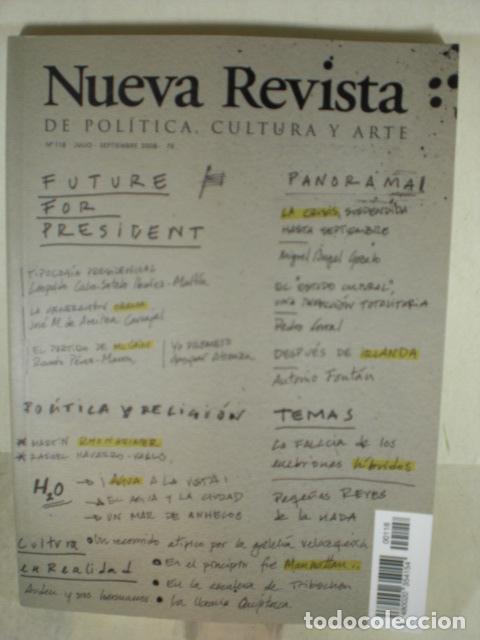 Nueva Revista
DE POLÍTICA, CULTURA Y ARTE
Nº 118 JULIO - SEPTIEMBRE 2008 - 7€
FUTURE
FOR
PRESIDENT
TIPOLOGÍA PRESIDENCIAL
Leopoldo Calvo-Sotelo Ibáñez-Martín
LA GENERACIÓN OBAMA
José M. de Areilza Carvajal
EL PARTIDO DE McCAIN
Ramón Pérez-Maura
YO PROMETO
PANORAMA
LA CRISIS, SUSPENDIDA
HASTA SEPTIEMBRE
Miguel Ángel Gozalo
EL "ESTADO CULTURAL",
UNA TRADICIÓN TOTALITARIA
Pedro
DESPUÉS DE IRLANDA
Antonio Fontán
POLÍTICA Y RELIGIÓN
* MARTIN RHONHEIMER
* RAFAEL NAVARRO-VALLS
TEMAS
LA FALACIA DE LOS
embriones híbridos
Pequeños REYES
de la NADA
H2O
¡AGUA A LA VISTA!
EL AGUA Y LA CIUDAD
UN MAR DE ANHELOS
Cultura
en Realidad
Un recorrido atípico por la galería velazqueña
En el principio fue Manhattan...
En la escalera de
Andreu y sus hermanos
La
00118
todocoleccion.net